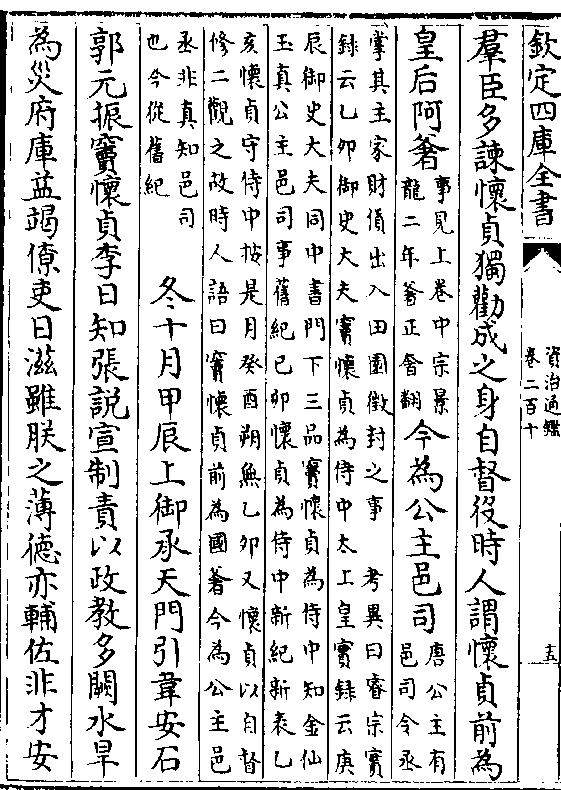 欽定四庫全書
資治通鑑
卷二百十
十五
羣臣多諫懷貞獨勸成之身自督役時人謂懷貞前為
皇后阿㸙
事見上卷中宗景
龍二年㸙正奢翻
今為公主邑司
唐公主有
邑司令丞
掌其主家財貨出入田園徵封之事 考異曰睿宗實
録云乙卯御史大夫竇懷貞為侍中太上皇實録云庚
辰御史大夫同中書門下三品竇懷貞為侍中知金仙
玉真公主邑司事舊紀己卯懷貞為侍中新紀新表乙
亥懷貞守侍中按是月癸酉朔無乙卯又懷貞以自督
修二觀之故時人語曰竇懷貞前為國㸙今為公主邑
丞非真知邑司
也今從舊紀
冬十月甲辰上御承天門引韋安石
郭元振竇懷貞李日知張説宣制責以政教多闕水旱
為災府庫益竭僚吏日滋雖朕之薄德亦輔佐非才安